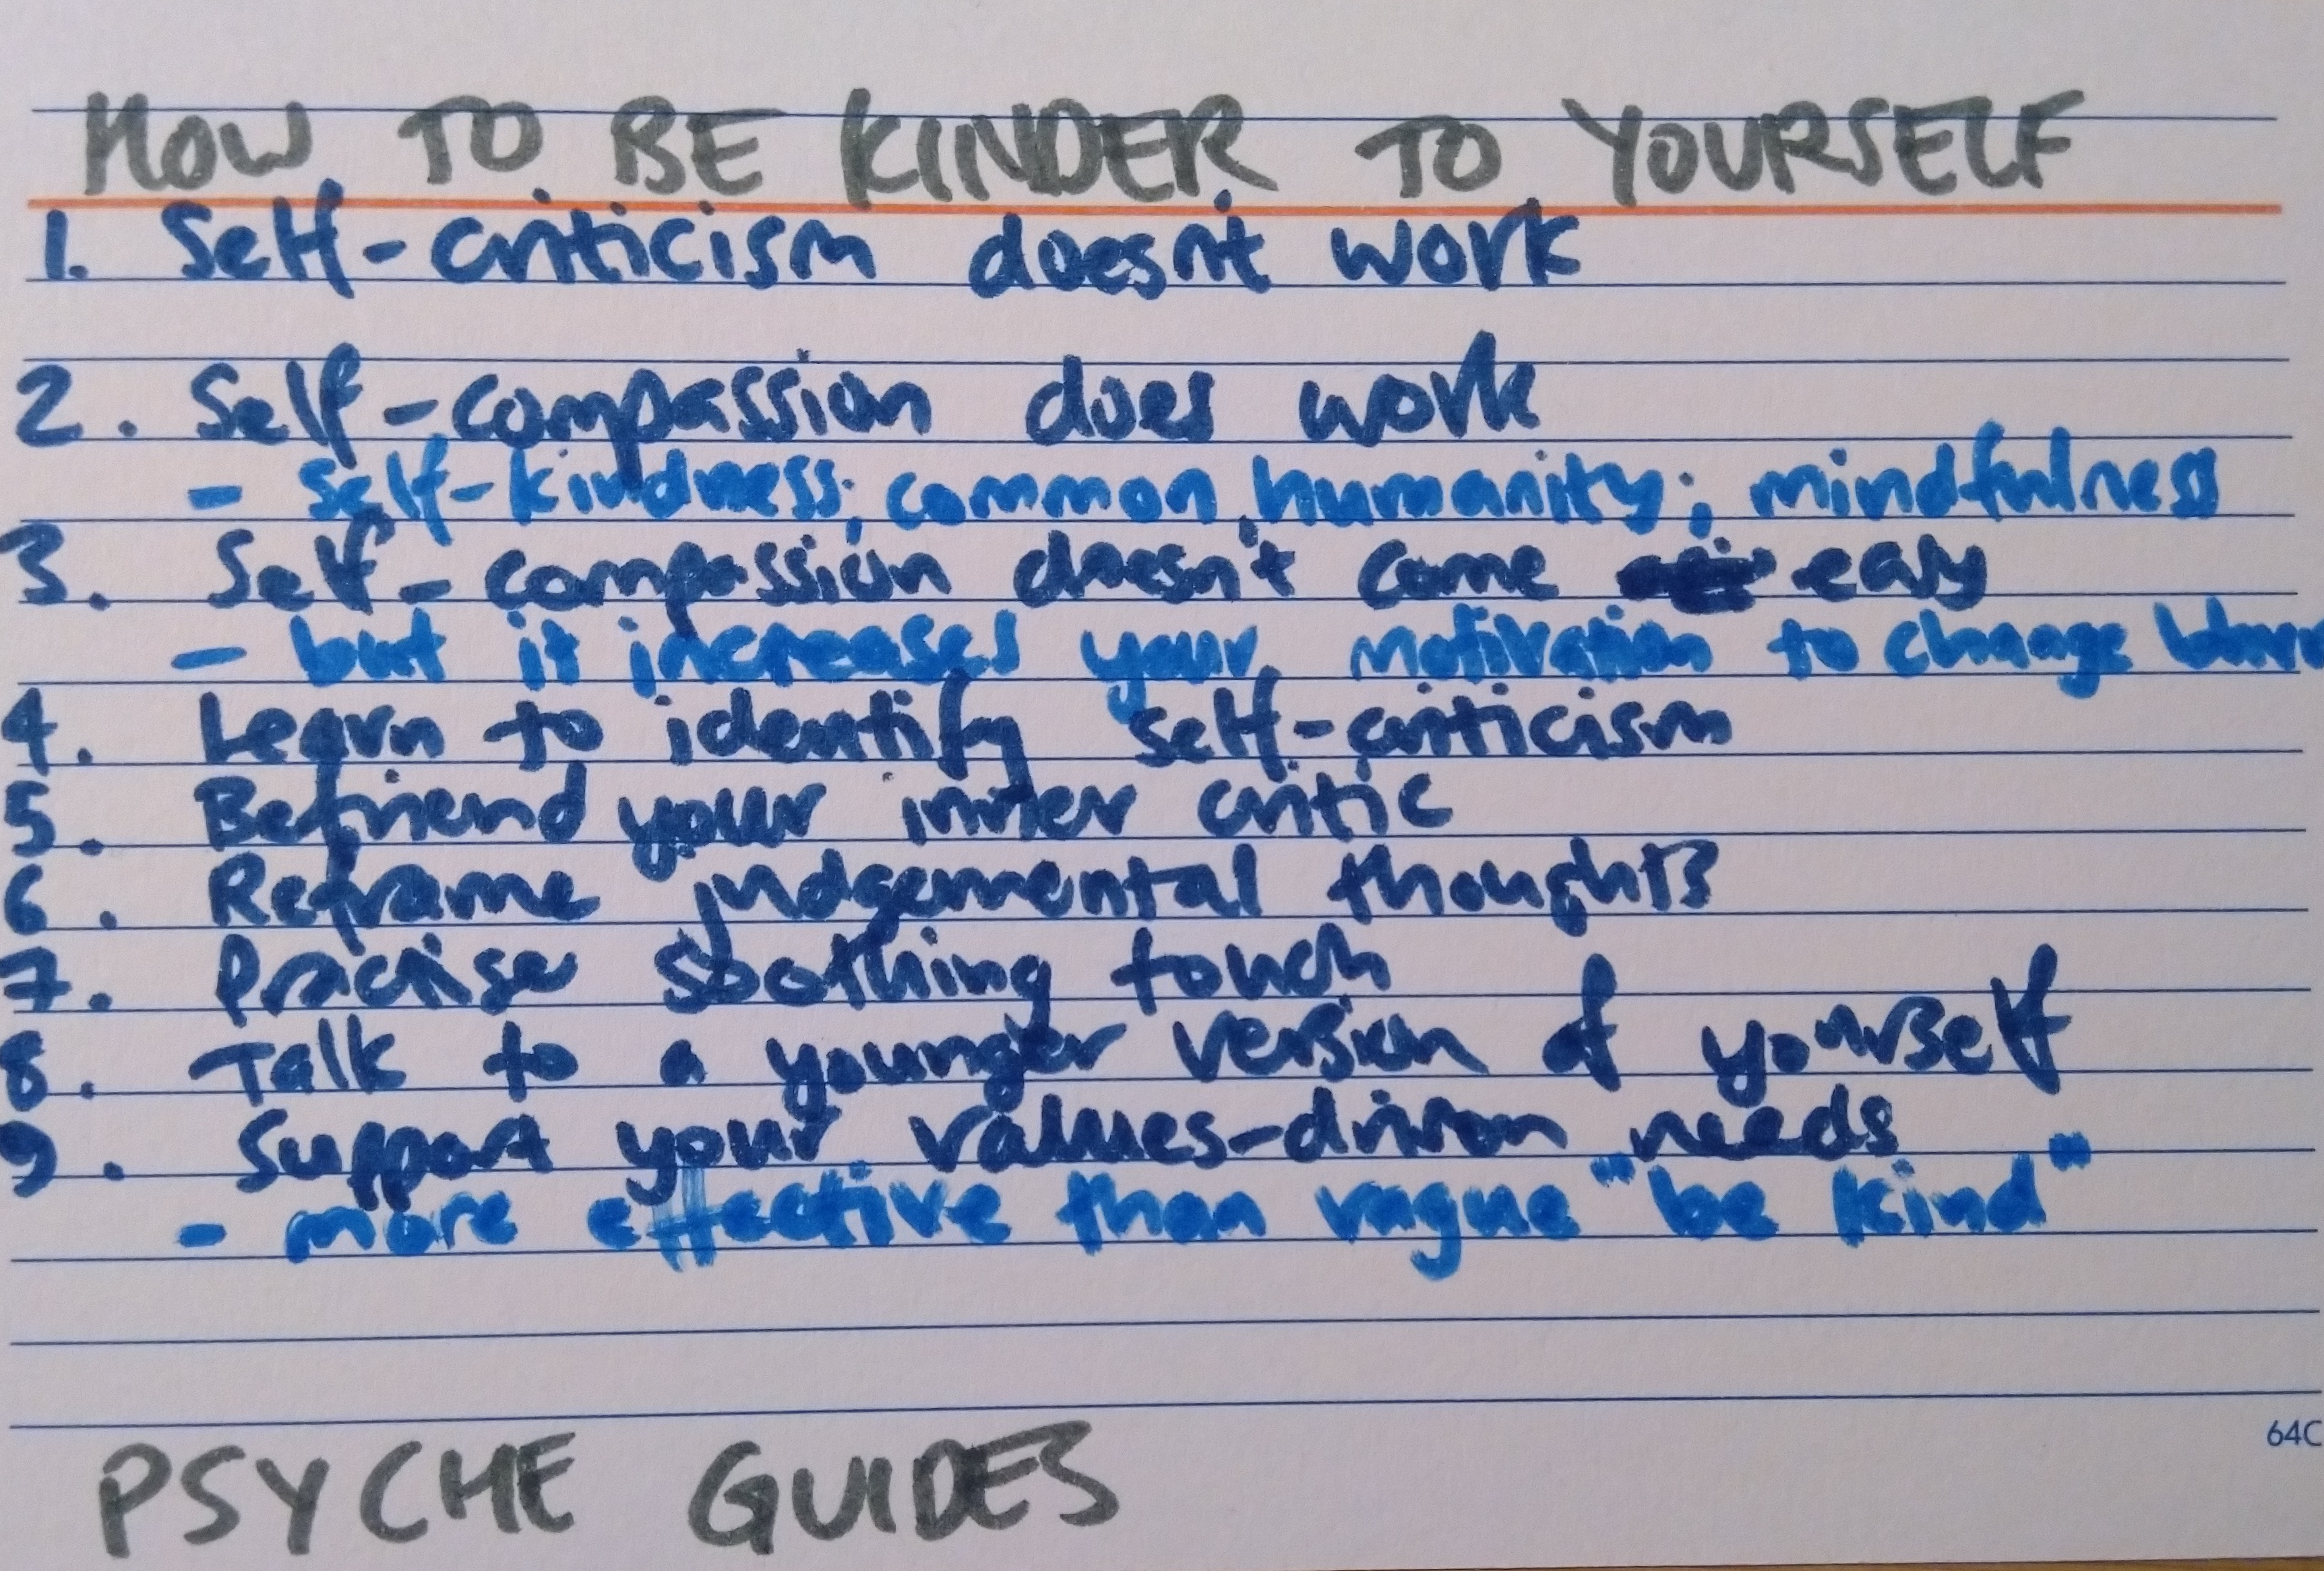 HOW TO BE KINDER TO YOURSELF
1. Self-criticism doesn't work
2. Self-compassion does work
- self-kindness; common humanity; mindfulness
3. Self-compassion doesn't come easy
- but it increases your motivation to change
4. Learn to identify self-criticism
5. Befriend your inner critic
6. Reframe judgemental thoughts
7. Practise soothing touch
8. Talk to a younger version of yourself
9. Support your values-driven needs
- more effective than vague "be kind"
64C
PSYCHE GUIDES